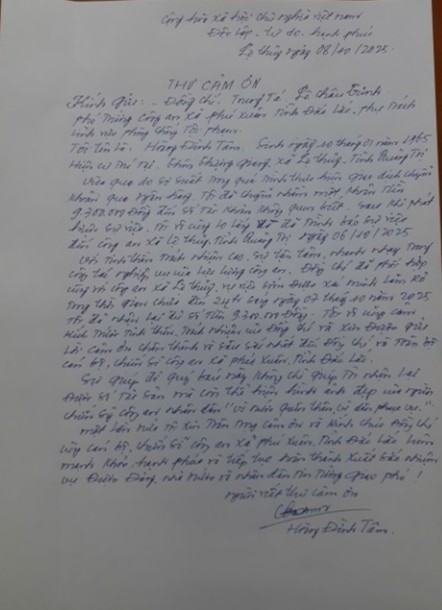 Cộng hòa xã hội chủ nghĩa việt nam
Độc lập - Tự do - hạnh phúc
Lệ thủy ngày 08/10/2025.
THƯ CẢM ƠN
Kính Gửi: - Đồng chí. Trung Tá. Lê Châu
Phó Trưởng Công an xã phú xuân Tỉnh Đắc Lắc, Phụ Trách
Lĩnh vực phòng chống Tội phạm.
Tôi tên là: Hoàng Đình Tâm. Sinh ngày 10 tháng 01 năm 1965
Hiện cư trú tại. Thôn Quang, xã Lệ Thủy, Tỉnh Quảng Trị
Vừa qua do sơ suất trong quá trình thực hiện giao dịch chuyển
khoản qua ngân hàng Tôi đã chuyển nhầm một khoản Tiền
9.300.000 Đồng đến số Tài khoản không quen biết. sau khi phát
hiện sự việc. Tôi vô cùng lo lắng đã Trình báo sự việc
đến công an xã Lệ Thủy, Tỉnh Quảng Trị ngày 06/10/2025
Với tinh thần trách nhiệm cao. sự tận tâm, nhanh nhạy trong
công tác nghiệp vụ của lực lượng công an. Đồng chí đã phối hợp
cùng với công an xã Lệ Thủy, vụ việc sớm Được xác minh làm rõ
trong thời gian chưa đến 24h sáng ngày 07 tháng 10 năm 2025
Tôi đã nhận lại đủ số Tiền 9.300.000 Đồng. Tôi vô cùng cảm
kích Trước Tinh thần, Trách nhiệm của Đồng chí và xin Được gửi
Lời cảm ơn chân thành và sâu sắc nhất đến Đồng chí và Toàn bộ
cán bộ, chiến sĩ công an xã phú xuân, Tỉnh Đắc Lắc.
Sự giúp đỡ quý báu này không chỉ giúp Tôi nhận Lại
Được số Tài sản mà còn thể hiện hình ảnh đẹp của người
chiến sỹ công an nhân dân "vì nước quên thân, vì dân phục vụ".
một lần nữa Tôi xin Trân Trọng cảm ơn và kính chúc Đồng chí
cùng cán bộ, chiến sĩ công an xã phú xuân, Tỉnh Đắc Lắc luôn
mạnh khỏe, hạnh phúc và tiếp tục hoàn thành xuất sắc nhiệm
vụ Được Đảng, nhà nước và nhân dân Tin Tưởng giao phó!
người viết thư cảm ơn
Hoàng Đình Tâm.